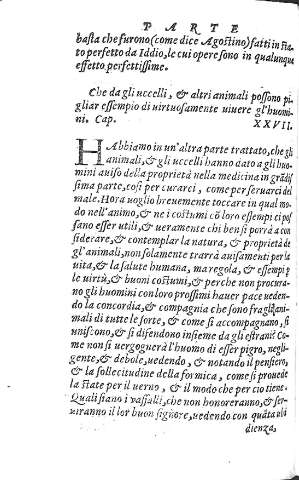 PARTE
basta che furono (come dice Agostino) fatti in sta
to perfetto da Iddio, le cui opere sono in qualunque
effetto perfettissime.
Che da gli uccelli, & altri animali possono pi
gliar essempio di virtuosamente uiuere gl'huomi
ni. Cap. XXVII.
HAbbiamo in un'altra parte trattato, che gli
animali, & gli uccelli hanno dato a gli huo
mini auiso della proprietà nella medicina in grãdis
sima parte, cosi per curarci, come per seruarci del
male. Hora uoglio breuemente toccare in qual mo
do nell'animo, & ne i costumi cõ loro essempi ci pos
sano esser utili, & ueramente chi ben si porrà a con
siderare, & contemplar la natura, & proprietà de
gl'animali, non solamente trarrà auisamenti per la
uita, & la salute humana, ma regola, & essempi p
le uirtù, & buoni costumi, & perche non procura-
no gli huomini con loro prossimi hauer pace ueden-
do la concordia, & compagnia che sono fra gli ani
mali di tutte le sorte, & come si accompagnano, si
uniscono, & si difendono insieme da gli estrani? Co
me non si uergognerà l'huomo di esser pigro, negli-
gente, & debole, uedendo, & notando il pensiero,
& la sollecitudine della formica, come si prouede
la state per il uerno, & il modo che per cio tiene.
Quali siano i vassalli, che non honoreranno, & ser-
uiranno il lor buon signore, uedendo con quãta ubi
dienza,